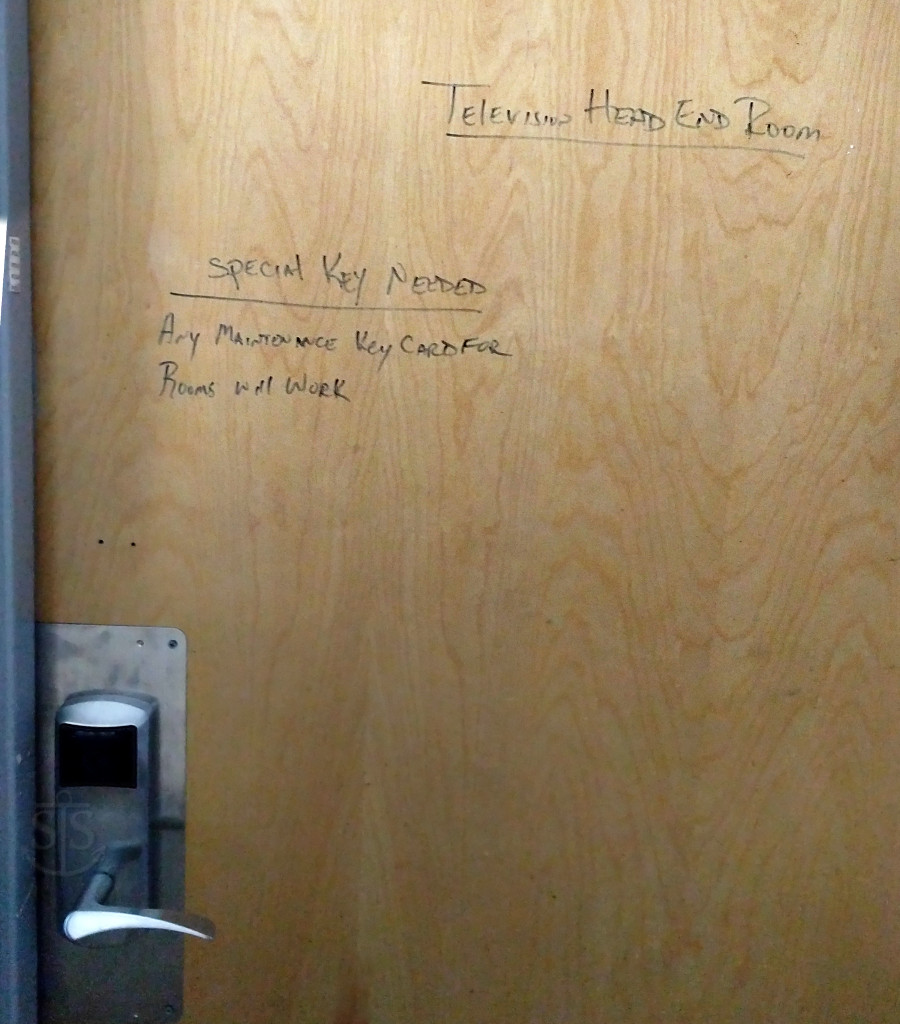 Television Head End Room
Special Key Needed
Any Maintenance Key Card For
Rooms will Work
STS